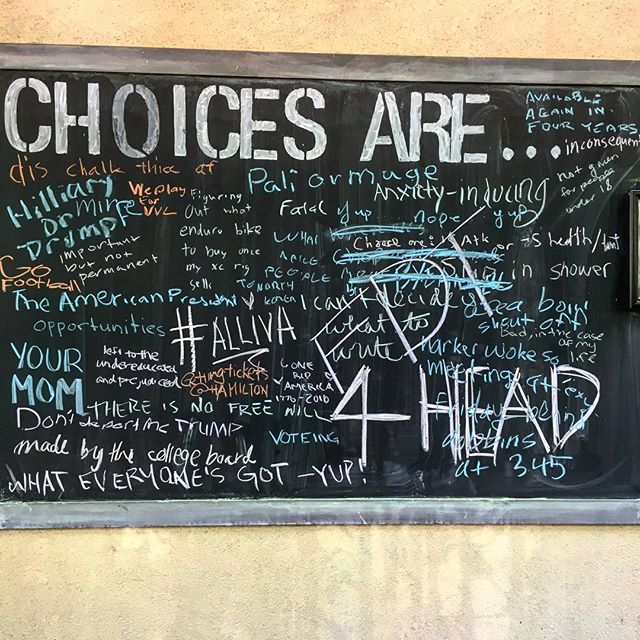 CHOICES ARE...
AVAILABLE
AGAIN IN
FOUR YEARS
inconsequent
not given
for people
under 18
dis chalk thicc af
Pali or mage
Anxiety-inducing
Hilliary
Dr mine
Drump
We play
For
VVL
Figuring
Out what
enduro bike
to buy once
my xc rig
sells
Fatal
yup
nope
yup
Choose one:
or
in shower
important
but not
permanent
GO
Football
WHAT
PEOPLE
NORTH
KOREA
The American President
opportunities
#ALLIVA
I can't decide
what to
write
shout out
Bad in the case
of my
life
YOUR
MOM
left to the
undereducated
and prejudiced
Getting tickets
to HAMILTON
GONE
RIP
AMERICA
1776-2016
Harker woke so
meeting
4 HEAD
THERE IS NO FREE WILL
Friday
Don't deport me TRUMP
VOTEING
made by the college board
dobbins
at 345
WHAT EVERYONE'S GOT -YUP!